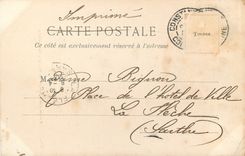 Imprimé
CARTE POSTALE
Ce côté est exclusivement réservé à l'adresse
Madame Bignon
Place de l'hôtel de Ville
La Flèche
Sarthe